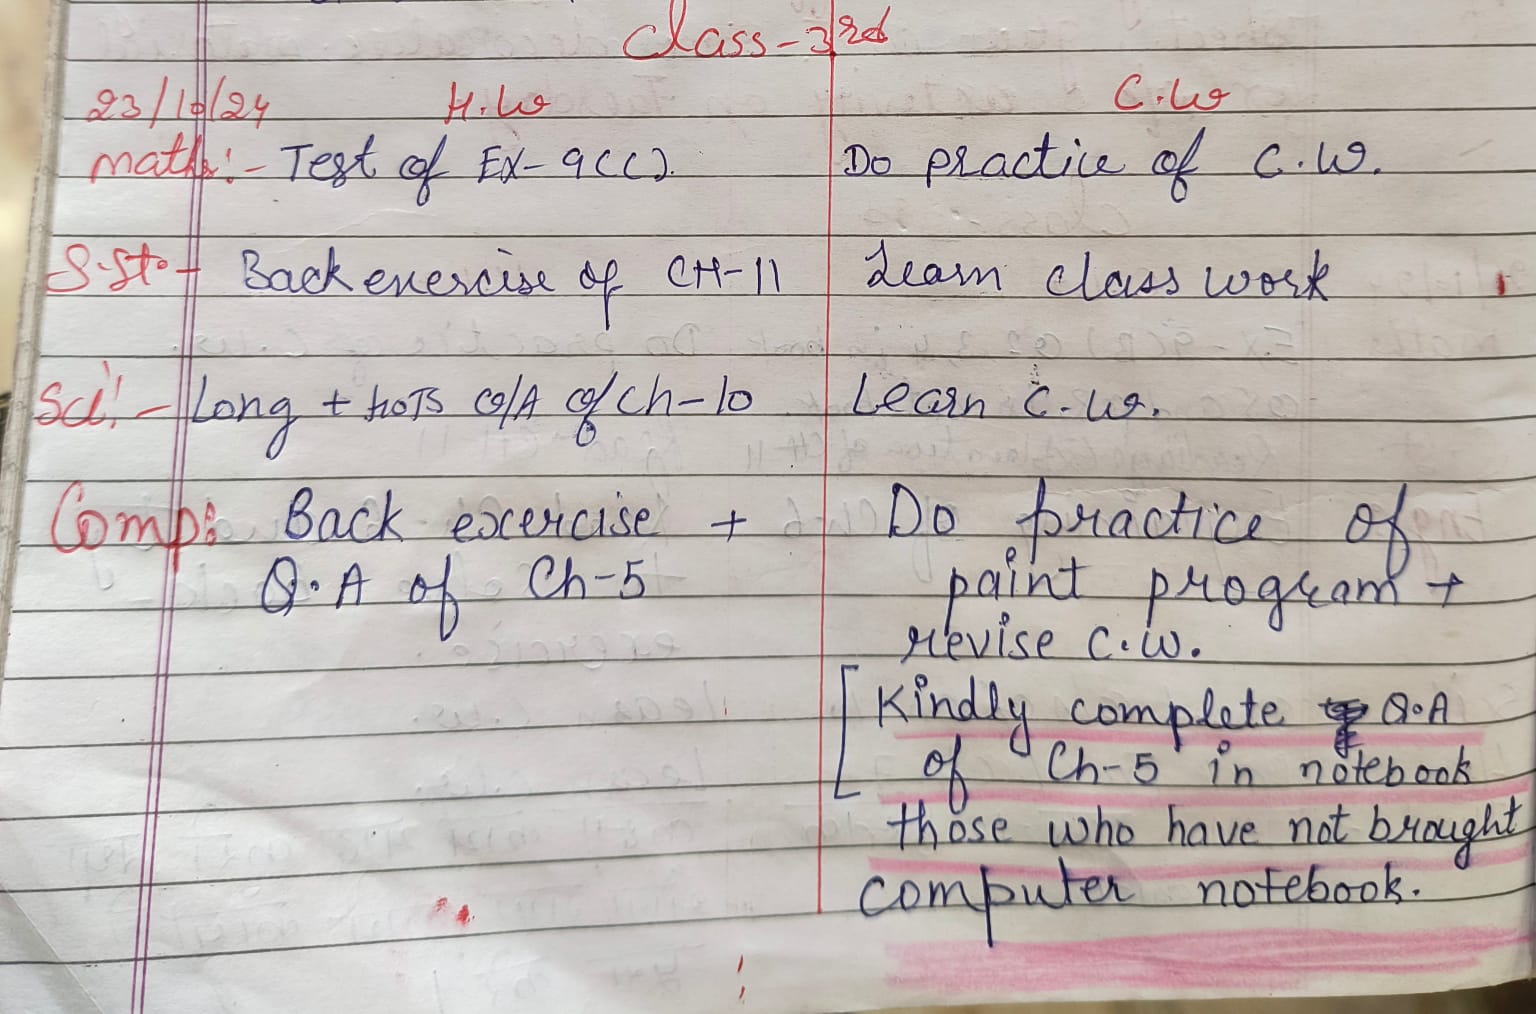 Class-3rd
23/10/24 H.W C.W
Math:- Test of EX-9(C). Do practice of C.W.
S.St:- Back exercise of CH-11 Learn class work
Sci:- Long + HOTS Q/A of Ch-10 Learn C.W.
Comp: Back excercise + Do practice of
Q.A of Ch-5 paint program +
revise C.W.
[Kindly complete Q.A
of Ch-5 in notebook
those who have not brought
computer notebook.